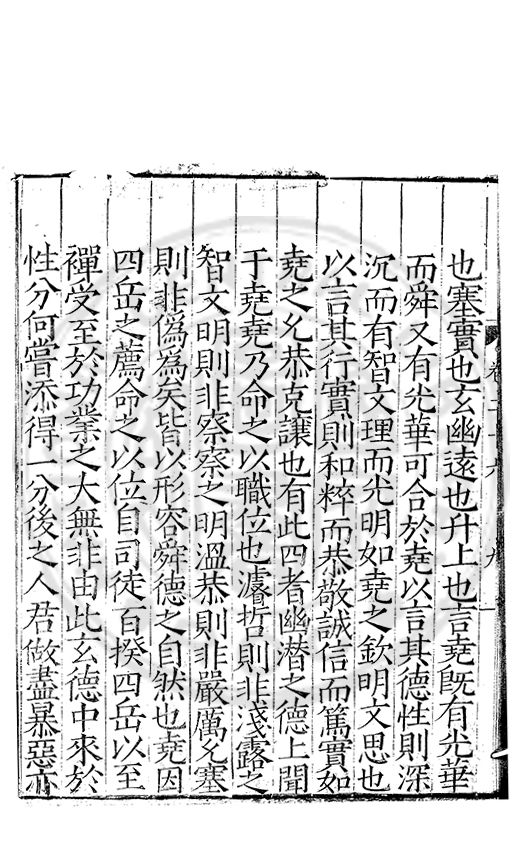 也塞實也玄幽遠也升上也言堯旣有光華
而舜又有光華可合於堯以言其德性則深
沉而有智文理而光明如堯之欽明文思也
以言其行實則和粹而恭敬誠信而篤實如
堯之允恭克讓也有此四者幽潜之德上聞
于堯堯乃命之以職位也濬哲則非淺露之
智文明則非察察之明溫恭則非嚴厲允塞
則非偽為矣皆以形容舜德之自然也堯因
四岳之薦命之以位自司徒百揆四岳以至
禪受至於功業之大無非由此玄德中來於
性分何嘗添得一分後之人君做盡暴惡亦